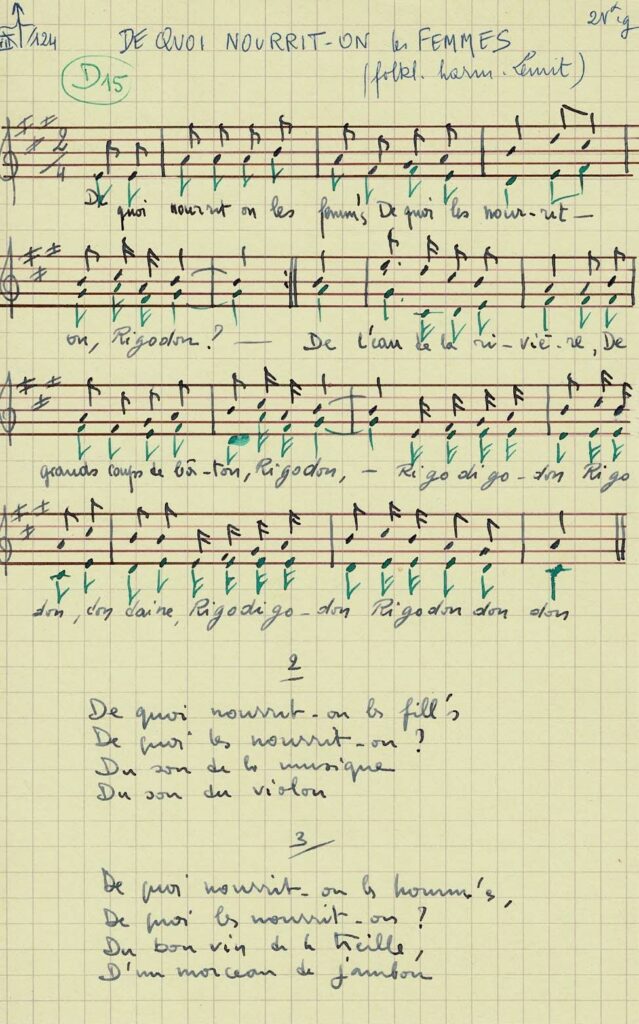 /124
DE QUOI NOURRIT-ON les FEMMES
2Vx ig
D15
(folkl. harm. Lémit)
2/4
De quoi nourrit on les femm's De quoi les nour-rit-
on, Rigodon? — De l'eau de la ri-viè-re, De
grands coups de bâ-ton, Rigodon, - Rigo di go-don Rigo
don, don daine, Rigodigo-don Rigodon don don
2
De quoi nourrit-on les fill's
De quoi les nourrit-on ?
Du son de la musique
Du son du violon
3
De quoi nourrit-on les homm's,
De quoi les nourrit-on ?
Du bon vin de la treille,
D'un morceau de jambon